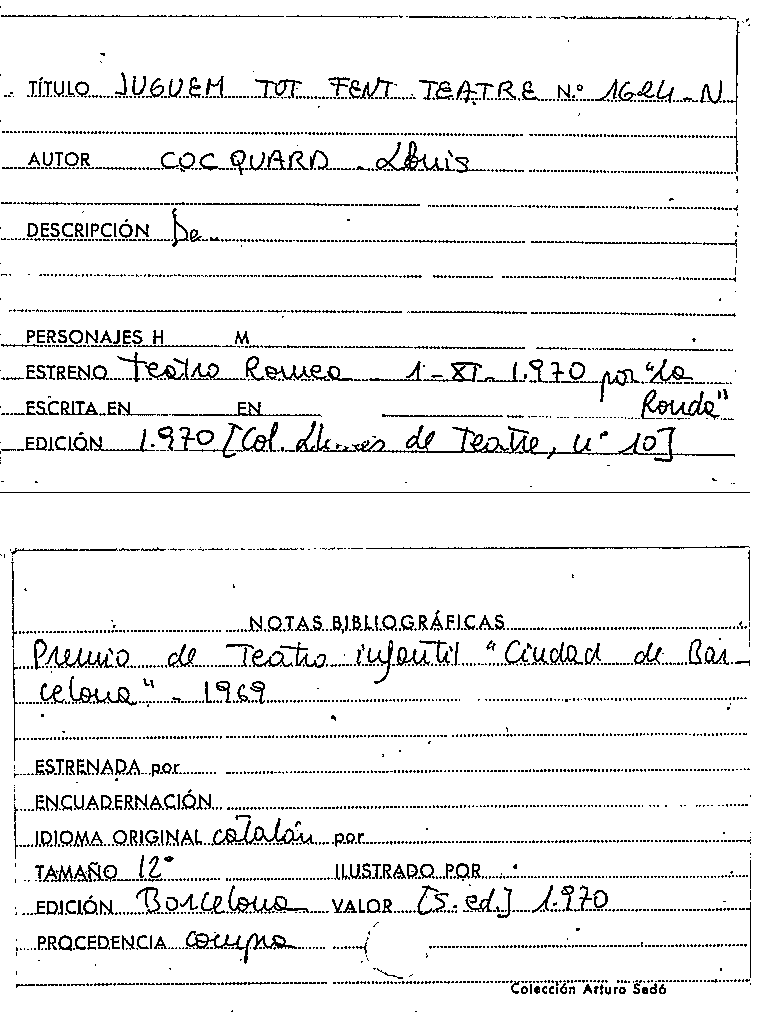 TÍTULO JUGUEM TOT FENT TEATRE N.º 1624-N
AUTOR COCQUARD - Lluis
DESCRIPCIÓN De.
PERSONAJES H M
ESTRENO Teatro Romea - 1-XI-1.970 por "La
ESCRITA EN EN Ronda"
EDICIÓN 1.970 [Col. de Teatre, nº 10]
NOTAS BIBLIOGRÁFICAS
Premio de Teatro infantil "Ciudad de Bar-
celona" - 1969
ESTRENADA por
ENCUADERNACIÓN
IDIOMA ORIGINAL catalán por
TAMAÑO 12º ILUSTRADO POR
EDICIÓN Barcelona VALOR [S. ed.] 1.970
PROCEDENCIA compra
Colección Arturo Sedó